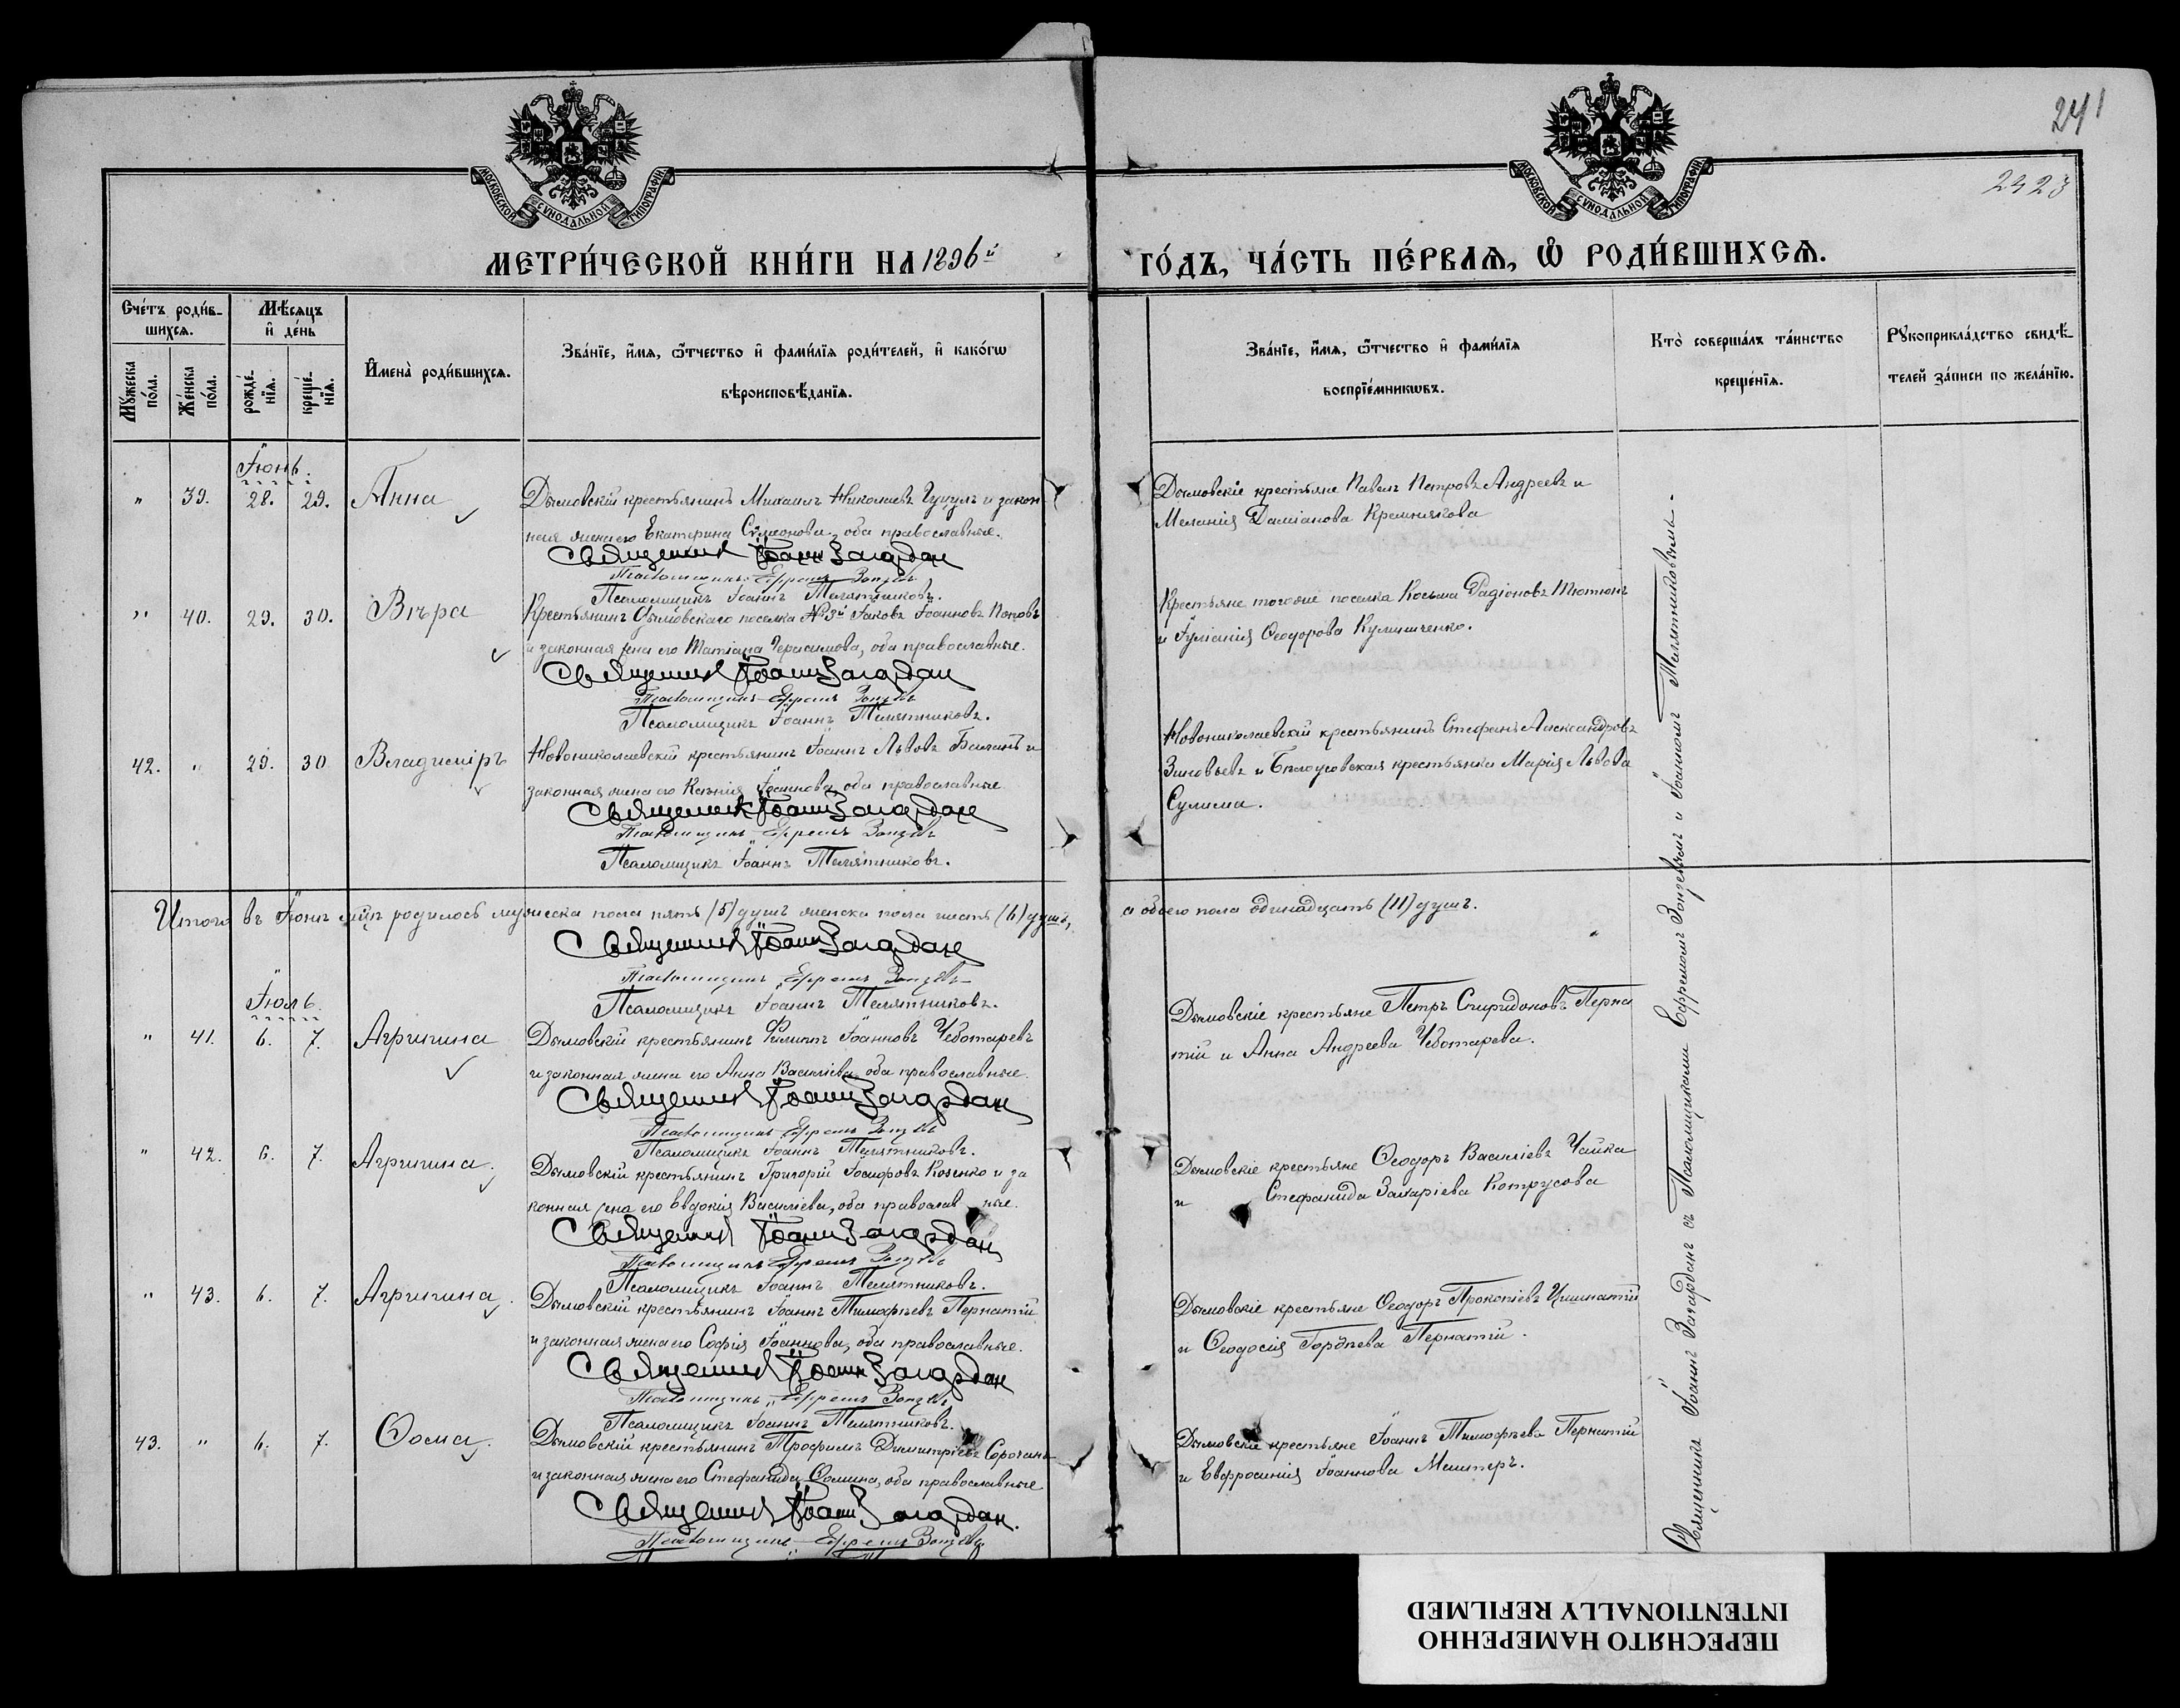 241
2423
МОСКОВСКОЙ СѴНОДАЛЬНОЙ ТИПОГРАФІИ
МОСКОВСКОЙ СѴНОДАЛЬНОЙ ТИПОГРАФІИ
МЕТРИ́ЧЕСКОЙ КНИ́ГИ НА 1896й
ГО́ДЪ, ЧА́СТЬ ПЕ́РВАѦ, Ѿ РОДИ́ВШИХСѦ.
Сче́тъ роди́в-
шихсѧ.
Мꙋ́жеска по́ла.
Же́нска по́ла.
Мѣ́сѧцъ
и҆ де́нь
рожде́-
нїѧ.
креще́-
нїѧ.
И҆мена̀ роди́вшихсѧ.
Зва́нїе, и҆́мѧ, ѻ҆́тчество и҆ фами́лїѧ роди́телей, и҆ како́гѡ
вѣроисповѣ́данїѧ.
Зва́нїе, и҆́мѧ, ѻ҆́тчество и҆ фами́лїѧ
воспрїе́мникѡвъ.
Кто̀ соверша́лъ та́инство
креще́нїѧ.
Рꙋкоприкла́дство свидѣ́-
телей за́писи по жела́нїю.
Іюнь.
" 39. 28. 29. Анна
Дымовскій крестьянинъ Михаилъ Николаевъ Гуцулъ и закон
ная жена его Екатерина Сѵмеонова, оба православные.
Священникъ Іоаннъ
Псаломщикъ Ефремъ
Псаломщикъ Іоаннъ Телятниковъ.
Дымовскіе крестьяне Павелъ Петровъ Андреевъ и
Меланія Даміанова Кремнякова
" 40. 29. 30. Вѣра
Крестьянинъ Дымовскаго поселка № 3й Іаковъ Іоанновъ Поповъ
и законная жена его Татіана Герасимова, оба православные.
Священникъ Іоаннъ
Псаломщикъ Ефремъ
Псаломщикъ Іоаннъ Телятниковъ.
Крестьяне тогоже поселка Косьма Радіоновъ Тютюнъ
и Іуліанія Ѳеодорова
42. " 29. 30 Владиміръ
Новониколаевскій крестьянинъ Іоаннъ Львовъ Баланъ и
законная жена его Ксенія Іоаннова, оба православные
Священникъ Іоаннъ
Псаломщикъ Ефремъ
Псаломщикъ Іоаннъ Телятниковъ.
Новониколаевскій крестьянинъ Стефанъ Александровъ
Зиновьевъ и Бѣлоусовская крестьянка Марія Львова
Сулима.
Итого въ Іюнѣ мцѣ родилось мужеска пола пять (5) душъ женска пола шесть (6) душъ,
а обоего пола одинадцать (11) душъ.
Священникъ Іоаннъ
Псаломщикъ Ефремъ
Псаломщикъ Іоаннъ Телятниковъ.
Іюль
" 41. 6. 7. Агрипина
Дымовскій крестьянинъ Филиппъ Іоанновъ Чеботаревъ
и законная жена его Анна Василіева, оба православные.
Священникъ Іоаннъ
Псаломщикъ Ефремъ
Псаломщикъ Іоаннъ Телятниковъ.
Дымовскіе крестьяне Петръ Спиридоновъ Перна
тій и Анна Андреева Чеботарева.
" 42. 6. 7. Агрипина.
Дымовскій крестьянинъ Григорій Іосифовъ Козенко и за
конная жена его Евдокія Василіева, оба православ ные.
Священникъ Іоаннъ
Псаломщикъ Ефремъ
Псаломщикъ Іоаннъ Телятниковъ.
Дымовскіе крестьяне Ѳеодоръ Василіевъ Чайка
и Стефанида Захаріева Котрусова
" 43. 6. 7. Агрипина.
Дымовскій крестьянинъ Іоаннъ Тимофѣевъ Пернатій
и законная жена его Софія Іоаннова, оба православные.
Священникъ Іоаннъ
Псаломщикъ Ефремъ
Псаломщикъ Іоаннъ Телятниковъ.
Дымовскіе крестьяне Ѳеодоръ Прокопіевъ
и Ѳеодосія Гордѣева Пернатій.
43. " 6. 7. Ѳома.
Дымовскій крестьянинъ Трофимъ Димитріевъ Сорочанъ
и законная жена его Стефанида Ѳомина, оба православные
Священникъ Іоаннъ
Псаломщикъ Ефремъ
Дымовскіе крестьяне Іоаннъ Тимофѣева Пернатій
и Евфросинія Іоаннова Мештеръ.
Священникъ Іоаннъ съ Псаломщиками Ефремомъ и Іоанномъ Телятниковымъ.
ПЕРЕСНЯТО НАМЕРЕННО
INTENTIONALLY REFILMED